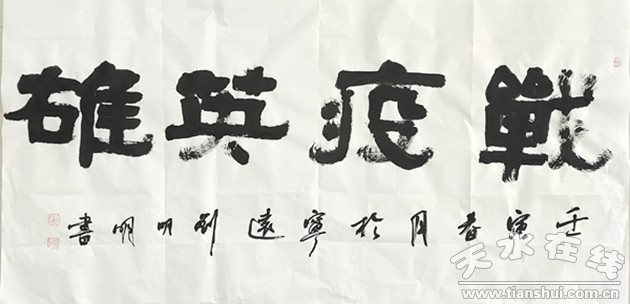 戰疫英雄
壬寅春月於寧遠劉明明書
天水在线
www.tianshui.com.cn